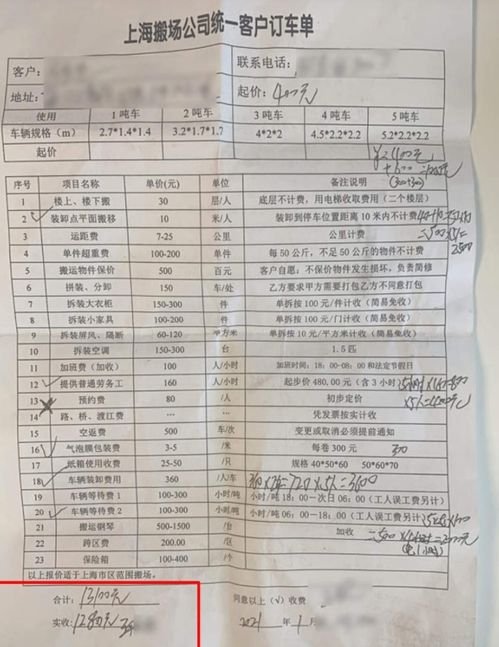 上海搬场公司统一客户订车单
客户: 联系电话:
地址: 起价: 400元
使用 1吨车 2吨车 3吨车 4吨车 5吨车
车辆规格（m） 2.7*1.4*1.4 3.2*1.7*1.7 4*2*2 4.5*2.2*2.2 5.2*2.2*2.2
起价
序号 项目名称 单价(元) 单位 备注说明
1 楼上、楼下搬 30 层/人 底层不计费，用电梯收取费用（二个楼层）
2 装卸点平面搬移 10 米/人 装卸到停车位置距离10米内不计费
3 运距费 7-25 公里 公里计费
4 单件超重费 100-200 单件 每50公斤，不足50公斤的物件不计费
5 搬运物件保价 500 百元 客户自愿，不保价物件发生损坏，负责简修
6 拼装、分卸 150 车/处 乙方要求甲方需要打包乙方不同意打包
7 拆装大衣柜 150-300 件 单拆按100元/件计收（简易免收）
8 拆装小家具 100-200 件 单拆按100元/门计收（简易免收）
9 拆装屏风、隔断 60-120 平方米 单拆按10元/平方米计收（简易免收）
10 拆装空调 150-300 台 1.5匹
11 加班费（加收） 100 人/小时 加班时间：18：00-08：00和法定节假日
12 提供普通劳务工 160 人/小时 起步价480.00元（含3小时）
13 预约费 80 /人 初步定价
14 路、桥、渡江费 … 凭发票按实计收
15 空返费 500 车/次 变更或取消必须提前通知
16 气泡膜包装费 3-5 /米 每卷300元
17 纸箱使用收费 25-50 /只 规格 40*50*60 50*60*70
18 车辆装卸费用 360 /人/车
19 车辆等待费1 100-300 小时/吨 小时/吨18：00一次日06：00（工人误工费另计）
20 车辆等待费2 100-300 小时/吨 小时/吨06：00－18：00（工人误工费另计）
21 搬运钢琴 500-1500 /台 加收
22 跨区费 200.00 /区
23 保险箱 100-400 /个
以上报价适于上海市区范围搬场。
合计: 13100元 同意以上（√）收费
实收: 12800元 2021年1月